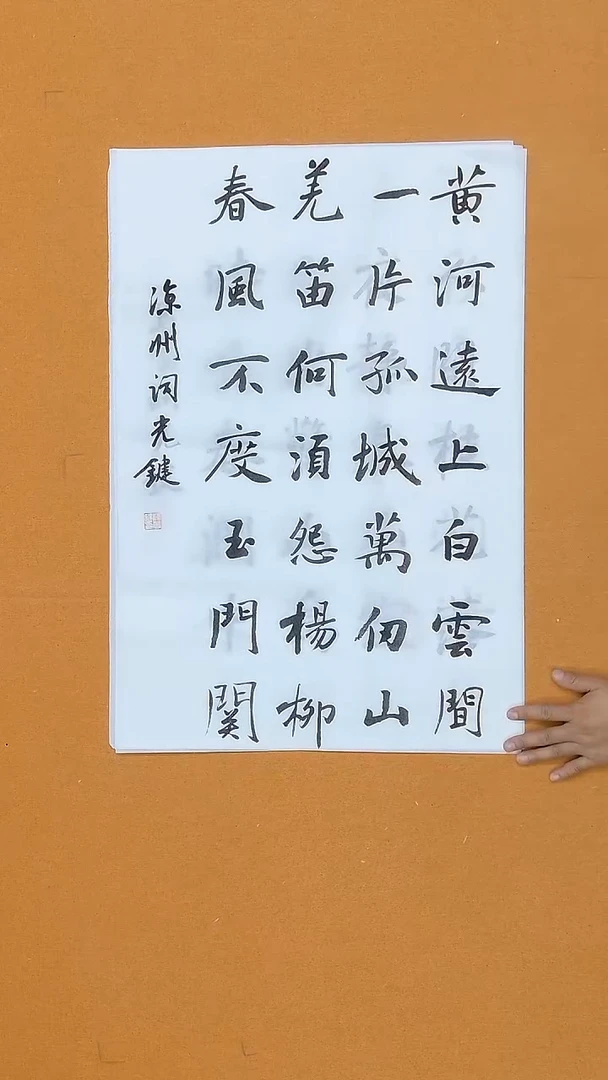 黄河遠上白雲間
一片孤城萬仞山
羌笛何須怨楊柳
春風不度玉門関
凉州词光鍵